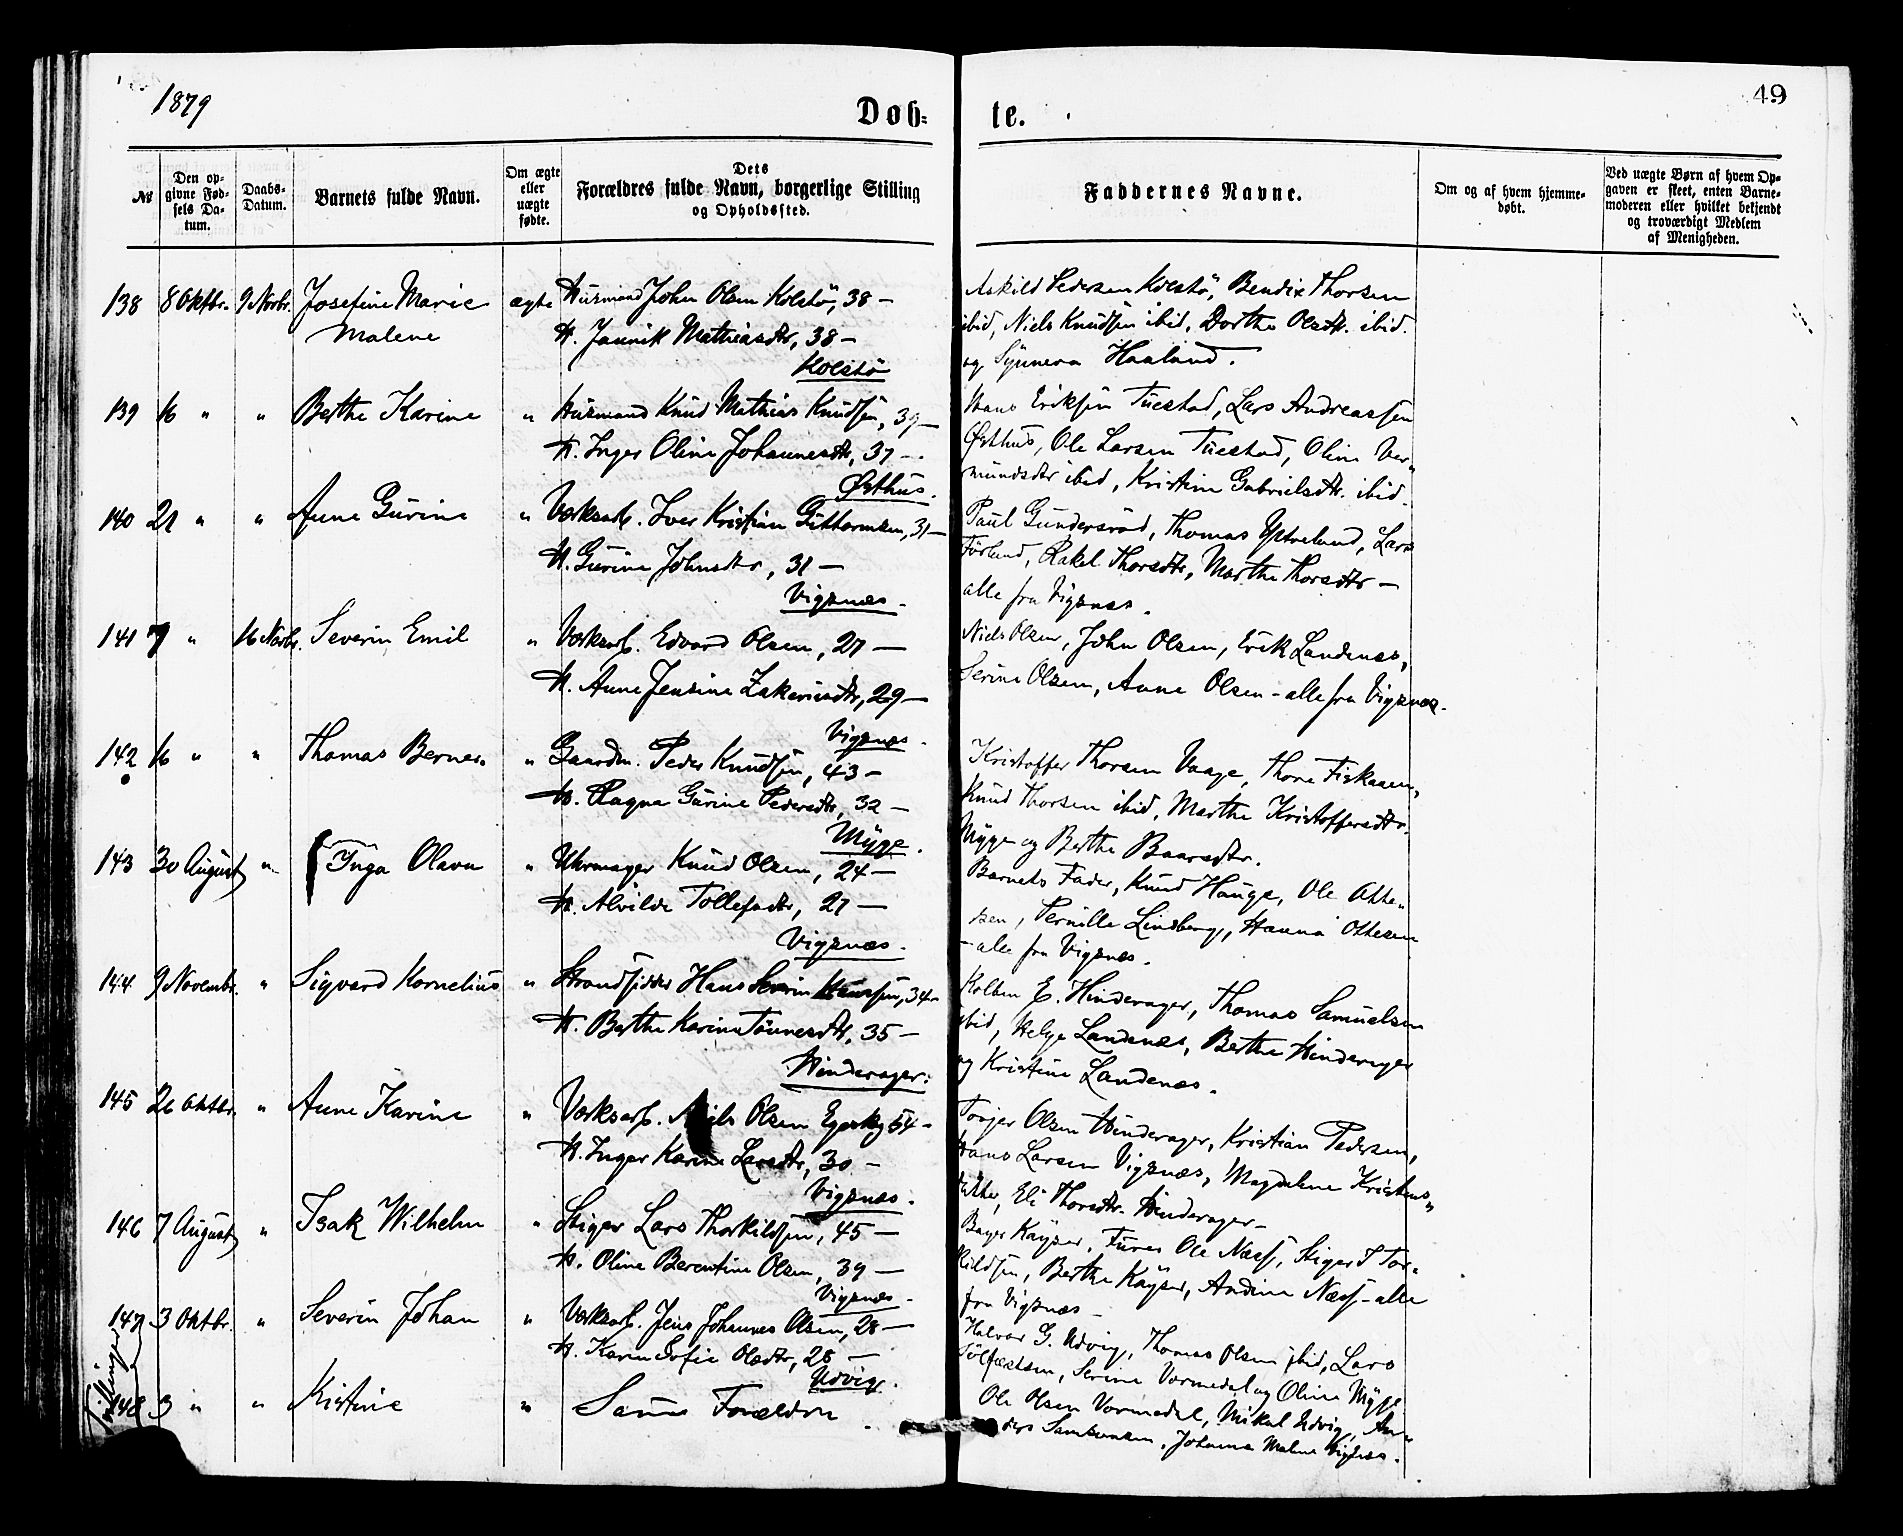 1879
Døb=
te.
49
№
Den op-
givne Fød-
sels Da-
tum.
Daabs-
Datum.
Barnets fulde Navn.
Om ægte
eller
uægte
fødte.
Dets
Forældres fulde Navn, borgerlige Stilling
og Opholdssted.
Faddernes Navne.
Om og af hvem hjemme-
døbt.
Ved uægte Børn af hvem Op-
gaven er skeet, enten Barne-
moderen eller hvilket bekjendt
og troværdigt Medlem
af Menigheden.
138 8 Oktbr. 9 Novbr. Josefine Marie ægte Husmand John Olsen Kolstø, 38 –
Malene H. Jannik Mathiasdtr, 38 –
Kolstø
Askild Pedersen Kolstø, Bendix Thorsen
ibid, Niels Knudsen ibid, Dorthe Olsdtr. ibid.
og Synneva Haaland.
139 16 " " Berthe Karine " Husmand Knud Mathias Knudsen, 39 –
H. Inger Oline Johannesdtr, 37 –
Østhus.
Hans Eriksen Tuestad, Lars Andreassen
Østhus, Ole Larsen Tuestad, Oline Ver-
mundsdtr ibid, Kristine Gabrielsdtr. ibid.
140 21 " " Anne Gurine " Værksarb. Iver Kristian Guttormsen, 31 –
H. Gurine Johnsdtr, 31 –
Vigsnæs.
Paul Gundersrød, Thomas Ytreland, Lars
Førland, Rakel Thorsdtr, Marthe Thorsdtr –
alle fra Vigsnæs.
141 7 " 16 Novbr. Severin Emil " Værksarb. Edvard Olsen, 27 –
H. Anne Jensine Zakariasdtr, 29 –
Vigsnæs.
Niels Olsen, John Olsen, Erik Landenæs,
Serine Olsen, Anne Olsen – alle fra Vigsnæs.
142 16 " " Thomas Berner. " Gaardm. Peder Knudsen, 43 –
H. Ragna Gurine Pedersdtr, 32 –
Myge.
Kristoffer Thorsen Vaage, Thore Fiskaaen,
Knud Thorsen ibid, Marthe Kristoffersdtr.
Myge og Berthe Baarsdtr.
143 30 August " Inga Olava " Uhrmager Knud Olsen, 24 –
H. Alvilde Tollefsdtr, 27 –
Vigsnæs.
Barnets Fader, Knud Hauge, Ole Otte-
sen, Pernille Lindberg, Hanna Ottesen
– alle fra Vigsnæs.
144 9 Novembr. " Sigvard Kornelius " Strandsidder Hans Severin Hanssen, 34 –
H. Berthe Karine Tønnesdtr, 35 –
Hinderager.
Kolben E. Hinderager, Thomas Samuelsen
ibid, Helge Landenæs, Berthe Hinderager
og Kristine Landenæs.
145 26 Oktbr. " Anne Karine " Værksarb. Niels Olsen 54 –
H. Inger Karine Larsdtr, 30 –
Vigsnæs.
Torger Olsen Hinderager, Kristian Pedersen,
Hans Larsen Vigsnæs, Magdalene Kristens-
datter, Eli Thorsdtr. Hinderager –
146 7 August " Isak Wilhelm " Stiger Lars Thorkildsen, 45 –
H. Oline Berentine Olsen, 39 –
Vigsnæs –
Bager Kayser, Furer Ole Næss, Stiger T Tor-
kildsen, Berthe Kayser, Andine Næss – alle
fra Vigsnæs –
Tvillinger
147 3 Oktbr. " Severin Johan " Værksarb. Jens Johannes Olsen, 28 –
H. Karen Sofie Olsdtr, 28 –
Udvig.
Halvor G. Udvig, Thomas Olsen ibid, Lars
Sølfestsen, Serine Vormedal og Oline Myge
148 3 " " Kistine " Samme Forældre.
Ole Olsen Vormedal, Mikal Udvig, An-
ders Samsonsen, Johanna Malene Vigsnæs.